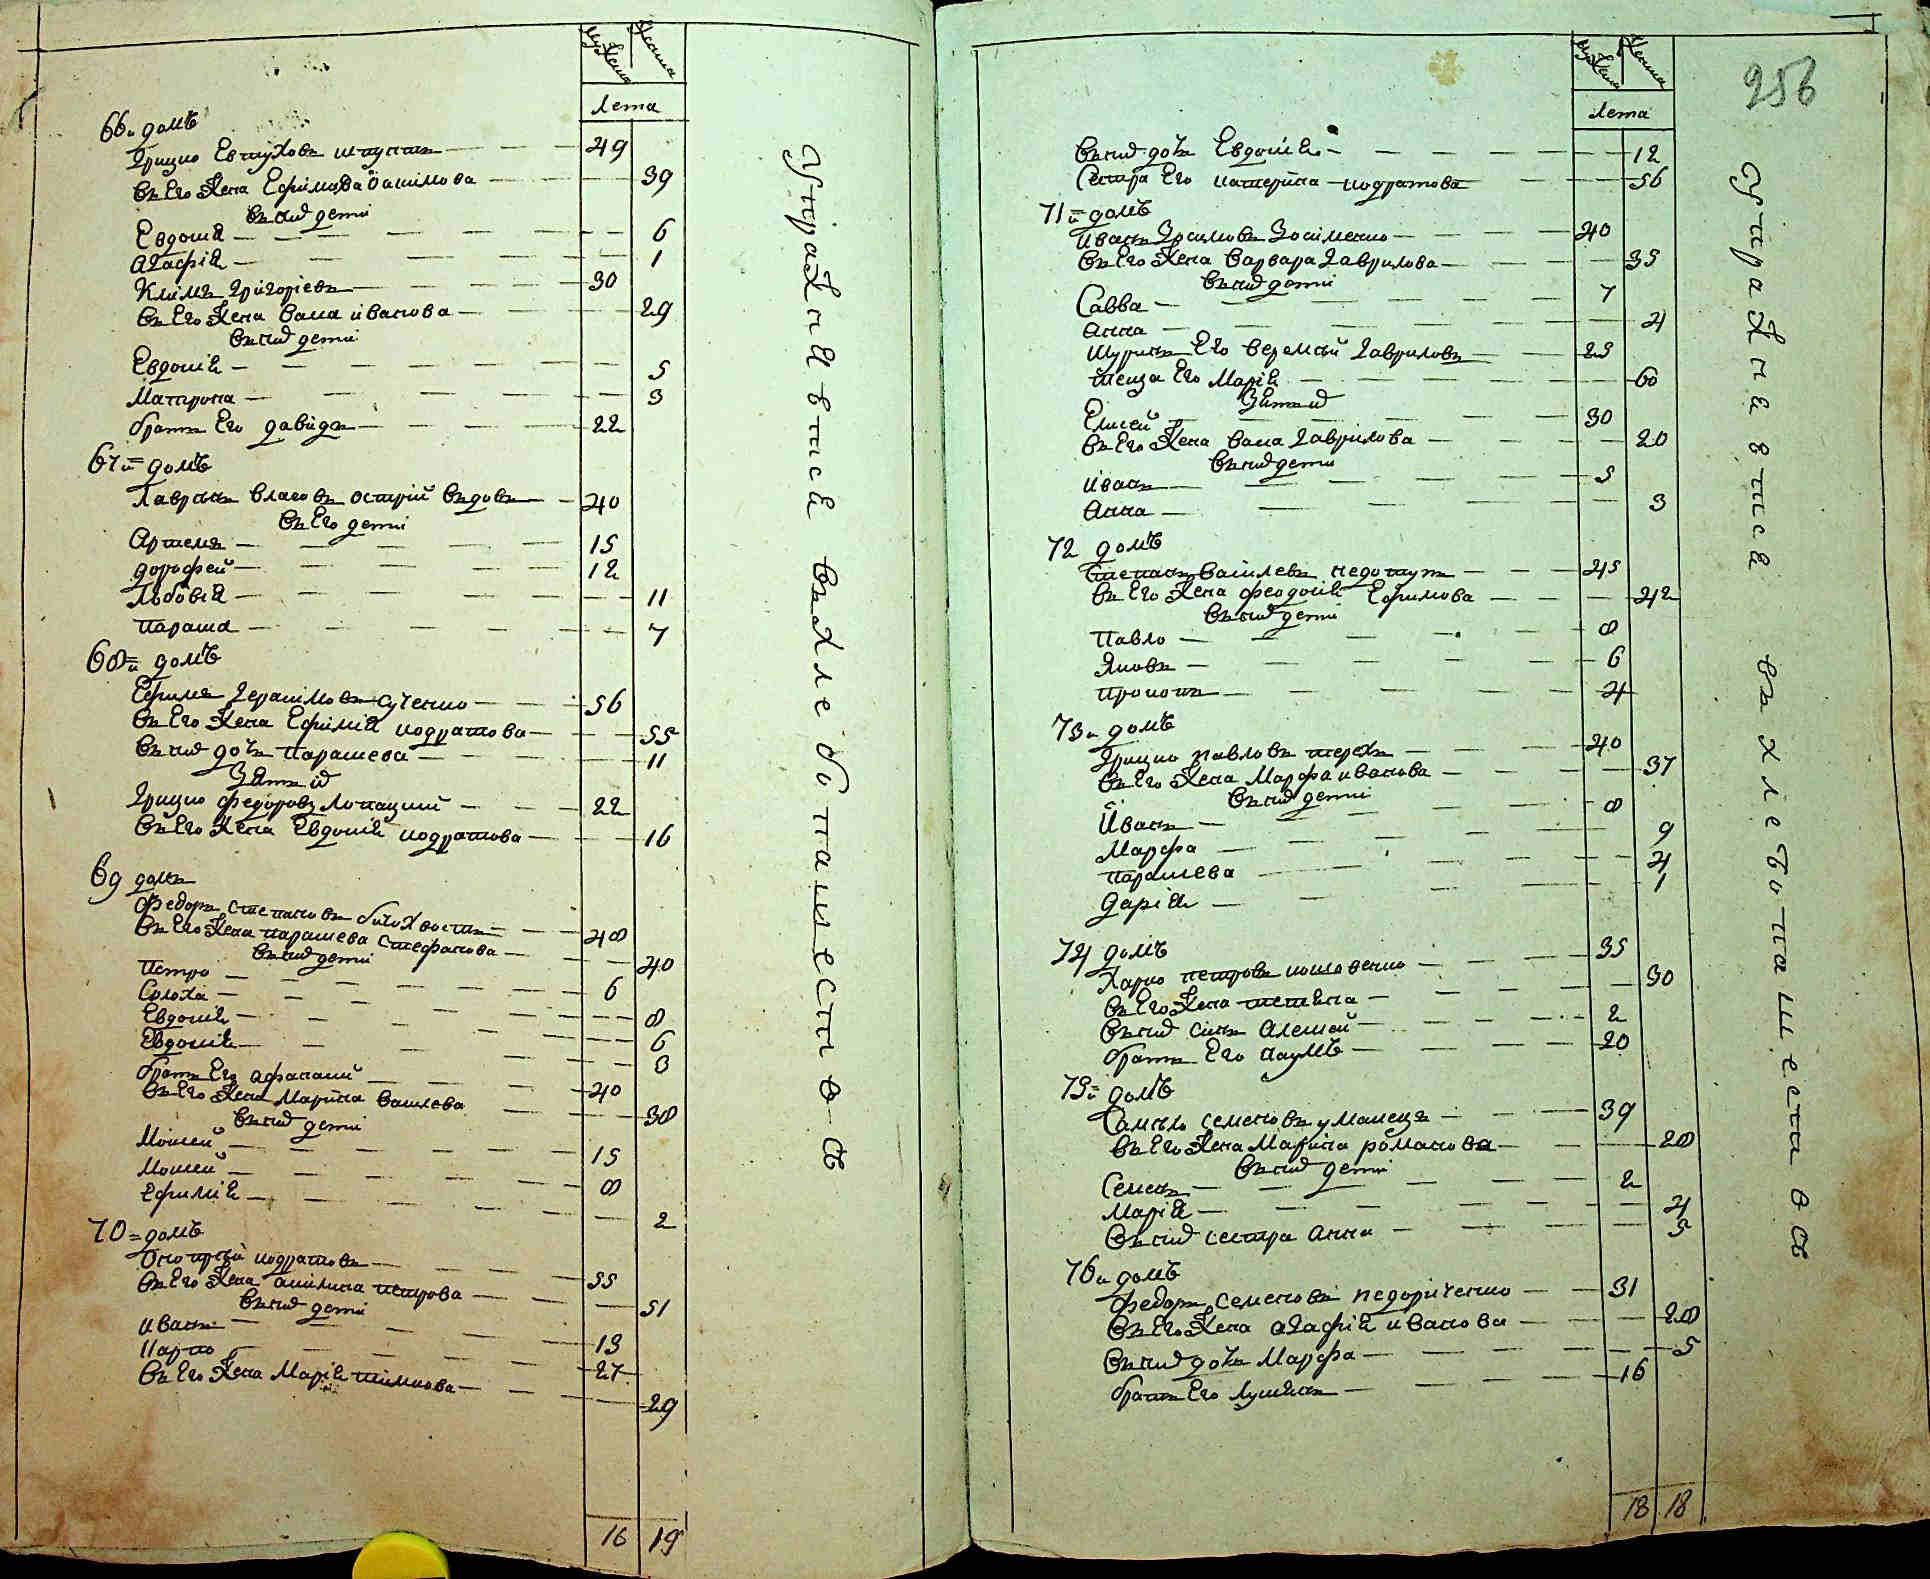 мужеска
женска
лета
66й домъ
Грицко Евтуховъ шпунтъ 49
въ Его жена Ефимова 39
въ нихъ дети
Евдокия 6
Агафия 1
Климъ Григориевъ 30
въ Его жена васа иванова 29
въ нихъ дети
Евдокия 5
Матрона 3
братъ Его давидъ 22
67й домъ
Лавринъ власовъ острий въдовъ 40
въ Его дети
Артемъ 15
дорофей 12
Любовия 11
параша 7
68й домъ
Ефимъ Герасимовъ сученко 56
въ Его жена Ефимия кодратова 55
въ нихъ дочъ парасцева 11
Зять ихъ
Грицко федоровъ лопацкий 22
въ Его жена Евдокия кодратова 16
69 домъ
федоръ степановъ билохвостъ 48
въ Его жена парасцева стефанова 40
въ нихъ дети
Петро 6
Солоха 8
Евдокия 6
Евдокия 3
братъ Его афанасий 40
въ Его жена Марина василева 38
въ нихъ дети
Мойсей 15
Мойсей 8
Ефимия 2
70й домъ
Оноприй кодратовъ 55
въ Его жена акилина петрова 51
въ нихъ дети
иванъ 13
Карпо 27
въ Его жена Мария тимкова 29
16 19
Упражняется въ хлебопашестве
мужеска
женска
лета
256
въ нихъ дочъ Евдокия 12
Сестра Его катерина кодратова 56
71й домъ
иванъ Зосимовъ Зосименко 40
въ Его жена варвара Гаврилова 35
въ нихъ дети
Савва 7
анна 4
шуринъ Его веремей Гавриловъ 25
теща Его Мария 60
Зять ихъ
Елисей 30
въ Его жена васа Гаврилова 20
въ нихъ дети
иванъ 5
Анна 3
72 домъ
степанъ василевъ недотуп 45
въ Его жена феодосия Ефимова 42
въ нихъ дети
Павло 8
Яковъ 6
прокопъ 4
73й домъ
Грицко павловъ терехъ 40
въ Его жена Марфа иванова 37
въ нихъ дети
Иванъ 8
Марфа 9
парасцева 4
дария 1
74 домъ
Харко петровъ 35
въ Его жена тетяна 30
въ нихъ синъ алексей 2
братъ Его наумъ 20
75й домъ
Самуло семеновъ уманецъ 39
въ Его жена Марина романова 28
въ нихъ дети
Семенъ 2
Мария 4
въ нихъ сестра анна 5
76й домъ
федоръ семеновъ недориченко 31
въ Его жена агафия иванова 28
въ нихъ дочъ Марфа 5
братъ Его лукянъ 16
18 18
Упражняется въ хлебопашестве